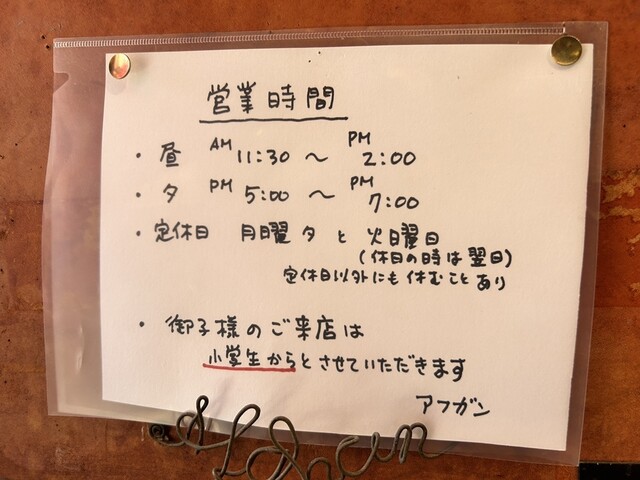 営業時間
・昼 AM 11:30 〜 PM 2:00
・夕 PM 5:00 〜 PM 7:00
・定休日 月曜夕と火曜日
(休日の時は翌日)
定休日以外にも休むことあり
・御子様のご来店は
小学生からとさせていただきます
アフガン
Afghan